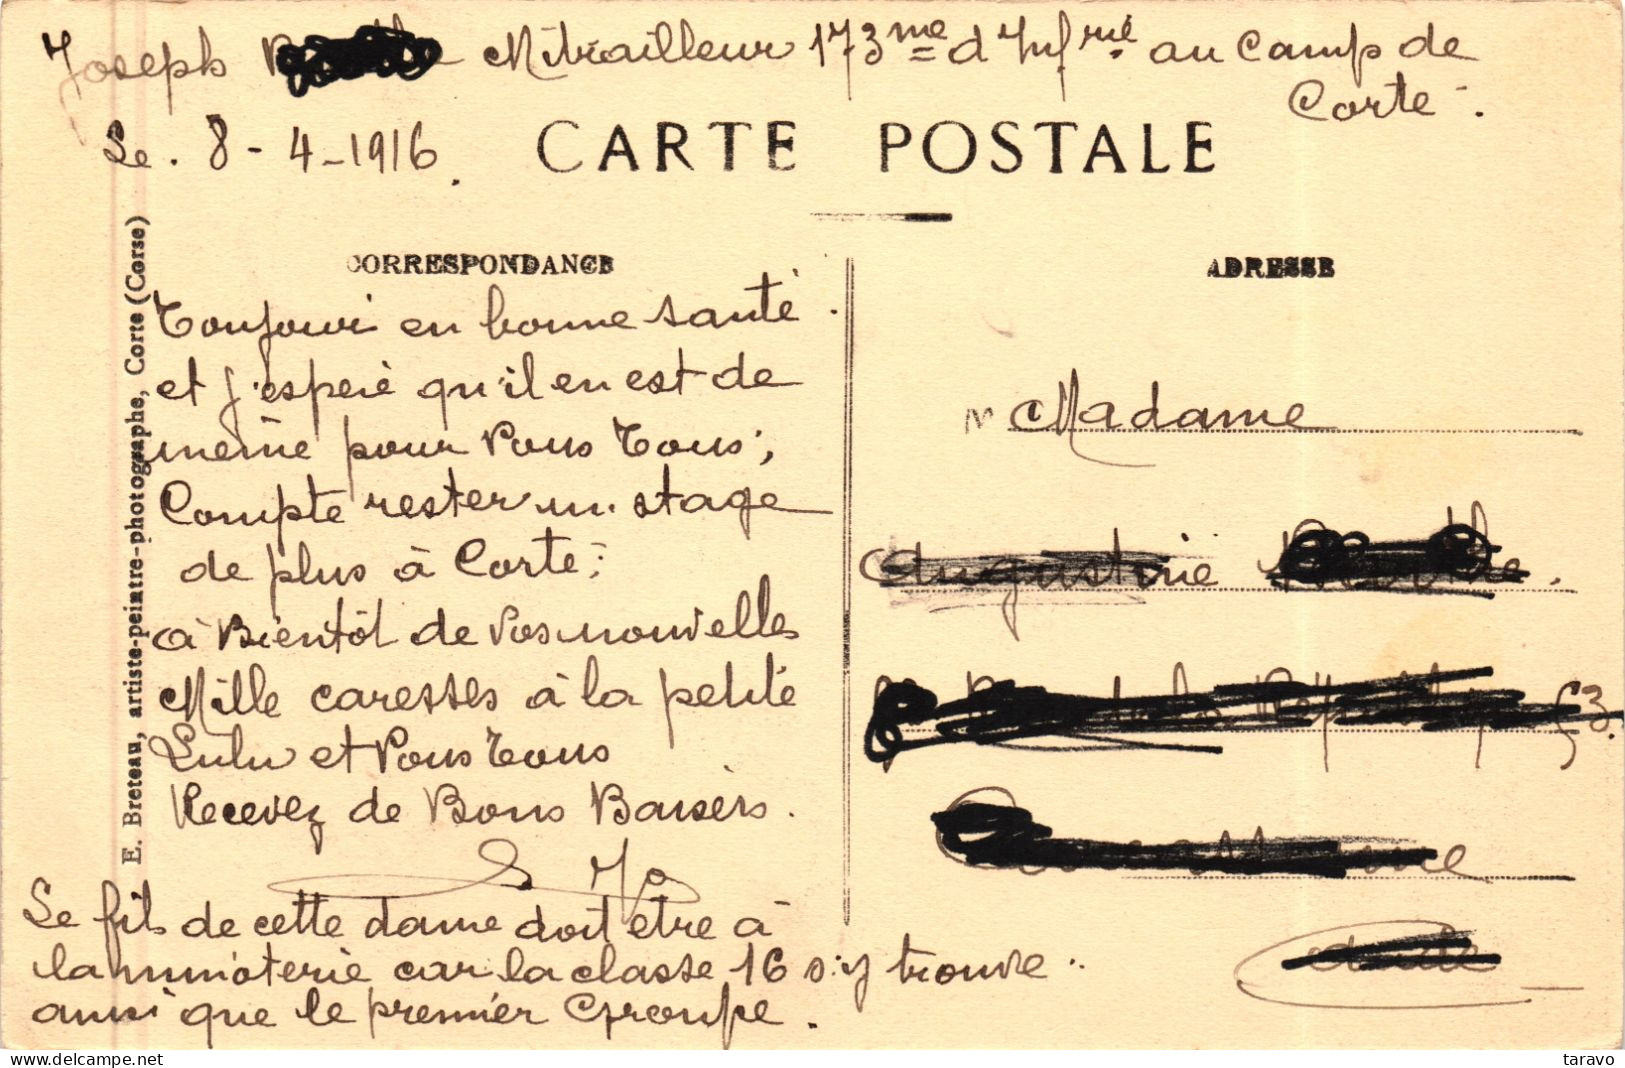 Joseph Mitrailleur 173me d'Infrie au Camp de
Corte.
Le. 8-4-1916.
CARTE POSTALE
CORRESPONDANCE
ADRESSE
E. Breteau, artiste-peintre-photographe, Corte (Corse)
Toujours en bonne santé.
et j'espère qu'il en est de
même pour Vous Tous;
Compte rester un stage
de plus à Corte.
à Bientôt de Vos nouvelles
Mille caresses à la petite
Lulu et Vous Tous
Recevez de Bons Baisers.
Jo
Le fils de cette dame doit être à
la minoterie car la classe 16 s'y trouve.
ainsi que le premier Groupe.
Madame
Augustine